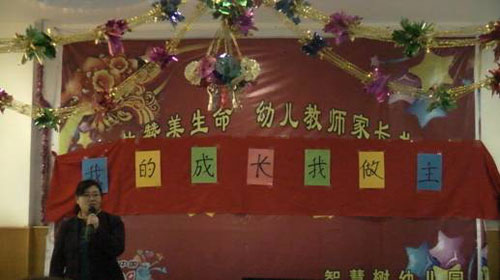 赞美生命 幼儿教师家长
我的成长我做主
智慧树幼儿园